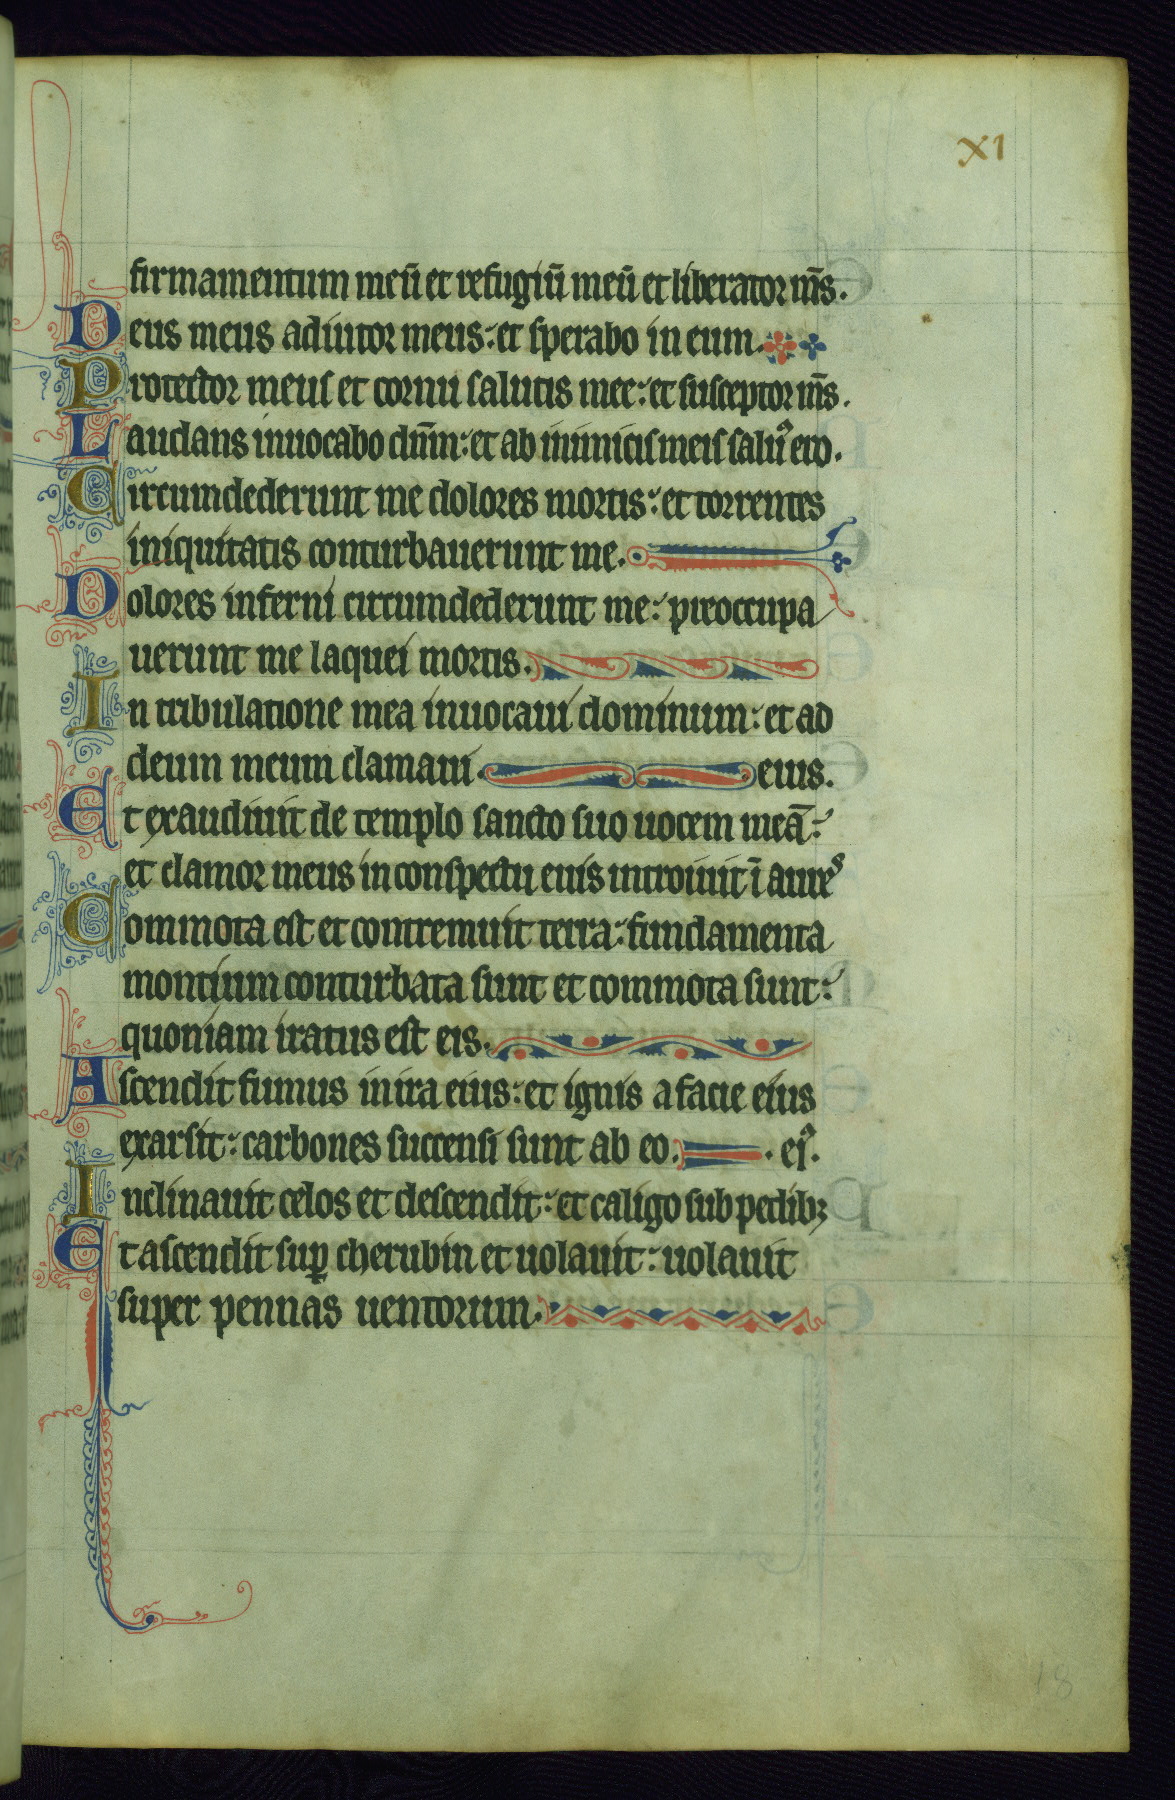 XI
firmamentum meū et refugiū meū et liberator m̄s.
Deus meus adiutor meus: et sperabo in eum.
Protector meus et cornu salutis mee: et susceptor m̄s.
Laudans inuocabo dn̄m: et ab inimicis meis saluꝰ ero.
Circumdederunt me dolores mortis: et torrentes
iniquitatis conturbauerunt me.
Dolores inferni circumdederunt me: preoccupa
uerunt me laquei mortis.
In tribulatione mea inuocaui dominum: et ad
deum meum clamaui. eius.
Et exaudiuit de templo sancto suo uocem meā:
et clamor meus in conspectu eius introiuit ī aures
Commota est et contremuit terra: fundamenta
montium conturbata sunt et commota sunt:
quoniam iratus est eis.
Ascendit fumus in ira eius: et ignis a facie eius
exarsit: carbones succensi sunt ab eo. eiꝰ.
Inclinauit celos et descendit: et caligo sub pedibꝫ
Et ascendit suꝑ cherubin et uolauit: uolauit
super pennas uentorum.
18